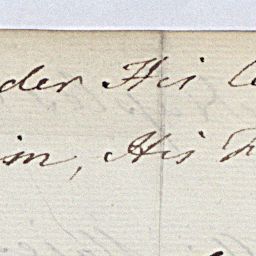 der His
im, His